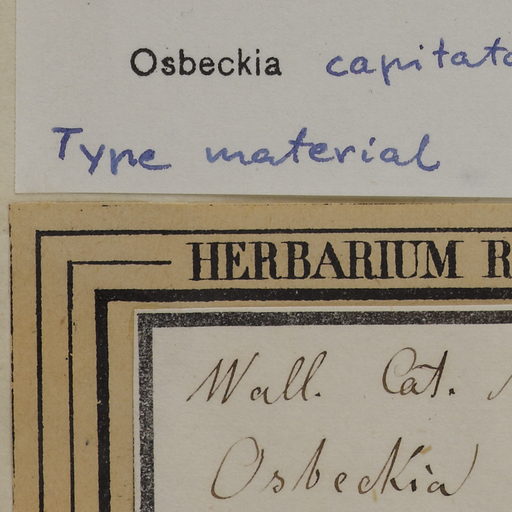 Osbeckia capitata
Type material
HERBARIUM
Wall. Cat.
Osbeckia